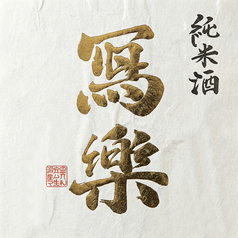 純米酒
寫樂